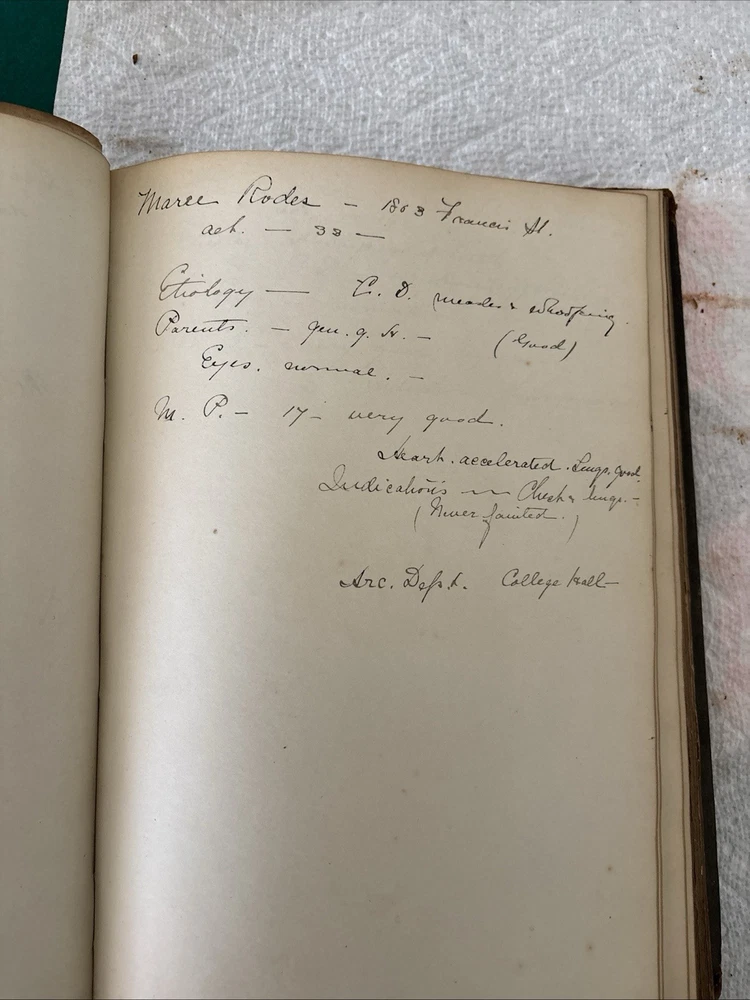 Maree Rodes — 1863 Francis St.
aet. — 33 —
Etiology — C. D. measles & whooping.
Parents. — gen. g. H. — (Good)
Eyes. normal. —
M. P. — 17 — very good.
Heart. accelerated. Lungs. good.
Indications — Chest & lungs. —
(Never fainted.)
Arc. Dept. College Hall —